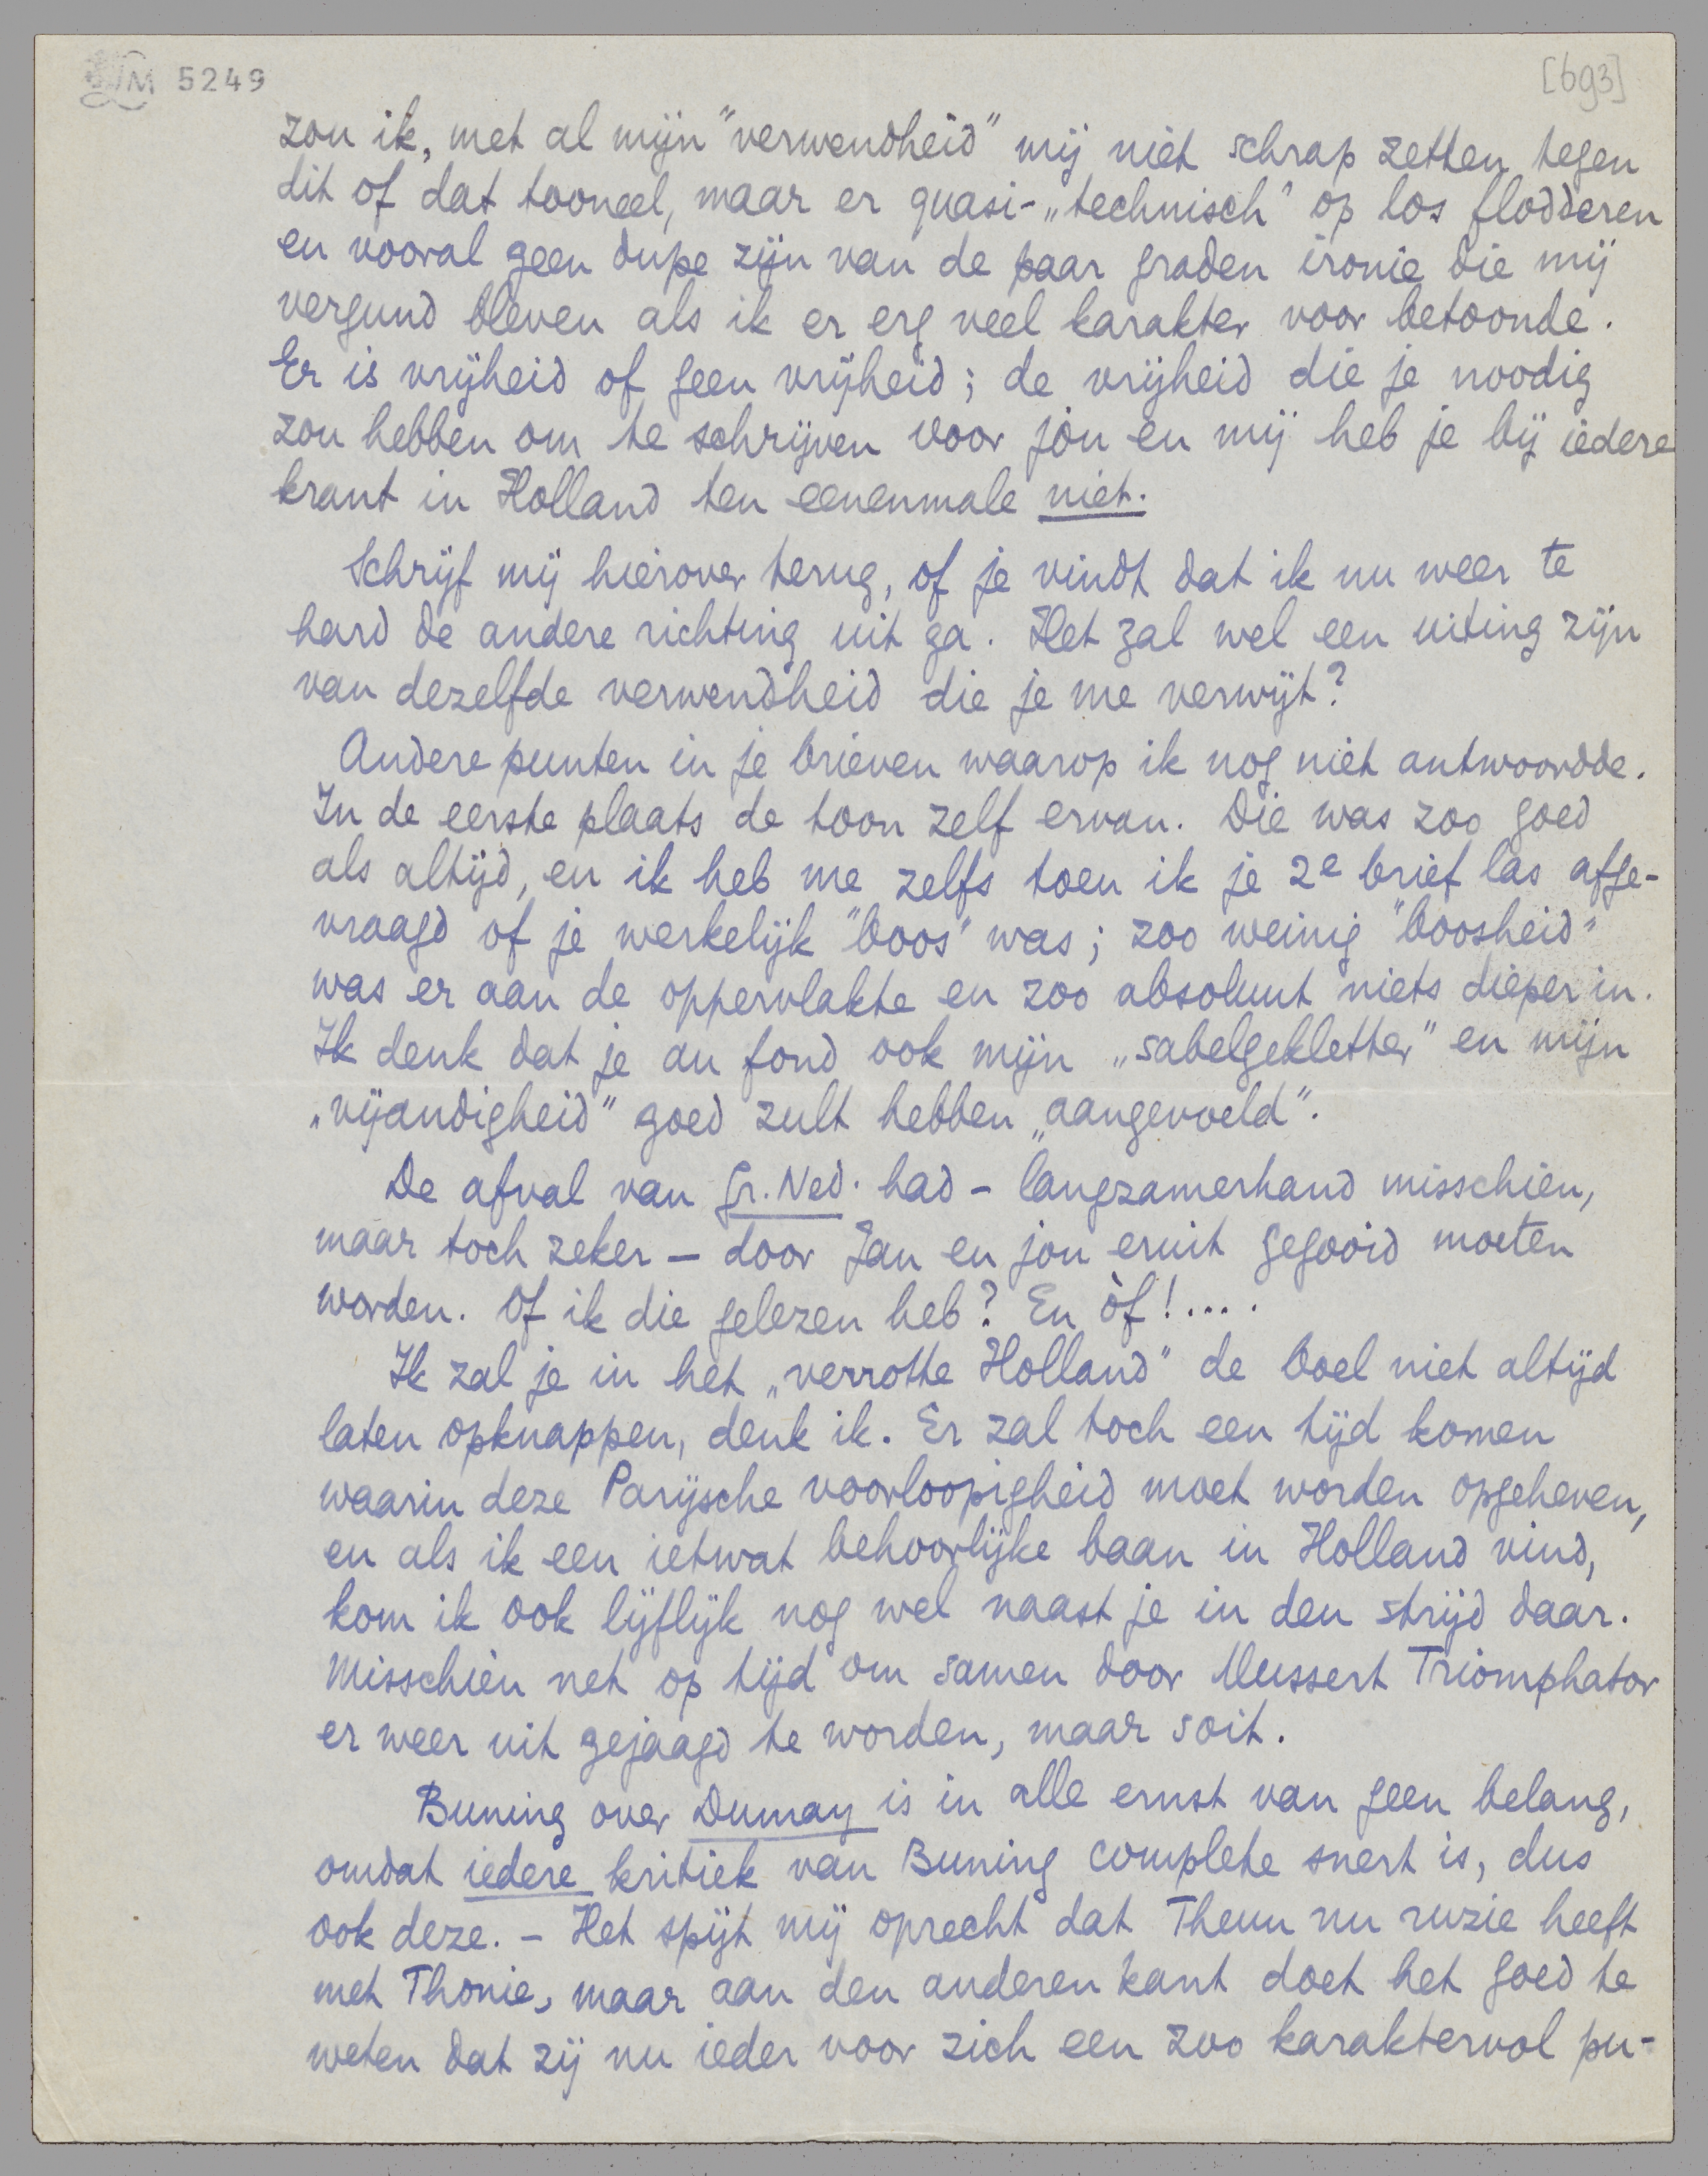 LM 5249
[693]
zou ik, met al mijn "verwendheid" mij niet schrap zetten tegen
dit of dat tooneel, maar er quasi-„technisch" op los flodderen
en vooral geen dupe zijn van de paar graden ironie die mij
vergund bleven als ik er erg veel karakter voor betoonde.
Er is vrijheid of geen vrijheid; de vrijheid die je noodig
zou hebben om te schrijven voor jòu en mij heb je bij iedere
krant in Holland ten eenenmale niet.
Schrijf mij hierover terug, of je vindt dat ik nu weer te
hard de andere richting uit ga. Het zal wel een uiting zijn
van dezelfde verwendheid die je me verwijt?
Andere punten in je brieven waarop ik nog niet antwoordde.
In de eerste plaats de toon zelf ervan. Die was zoo goed
als altijd, en ik heb me zelfs toen ik je 2e brief las afge-
vraagd of je werkelijk "boos" was; zoo weinig "boosheid"
was er aan de oppervlakte en zoo absoluut niets dieper in.
Ik denk dat je au fond ook mijn „sabelgekletter" en mijn
„vijandigheid" goed zult hebben „aangevoeld".
De afval van Gr. Ned. had - langzamerhand misschien,
maar toch zeker - door Jan en jou eruit gegooid moeten
worden. Of ik die gelezen heb? En òf!....
Ik zal je in het „verrotte Holland" de boel niet altijd
laten opknappen, denk ik. Er zal toch een tijd komen
waarin deze Parijsche voorloopigheid moet worden opgeheven,
en als ik een ietwat behoorlijke baan in Holland vind,
kom ik ook lijflijk nog wel naast je in den strijd daar.
Misschien net op tijd om samen door Mussert Triomphator
er weer uit gejaagd te worden, maar soit.
Buning over Dumay is in alle ernst van geen belang,
omdat iedere kritiek van Buning complete snert is, dus
ook deze. - Het spijt mij oprecht dat Theun nu ruzie heeft
met Thonie, maar aan den anderen kant doet het goed te
weten dat zij nu ieder voor zich een zoo karaktervol pu-